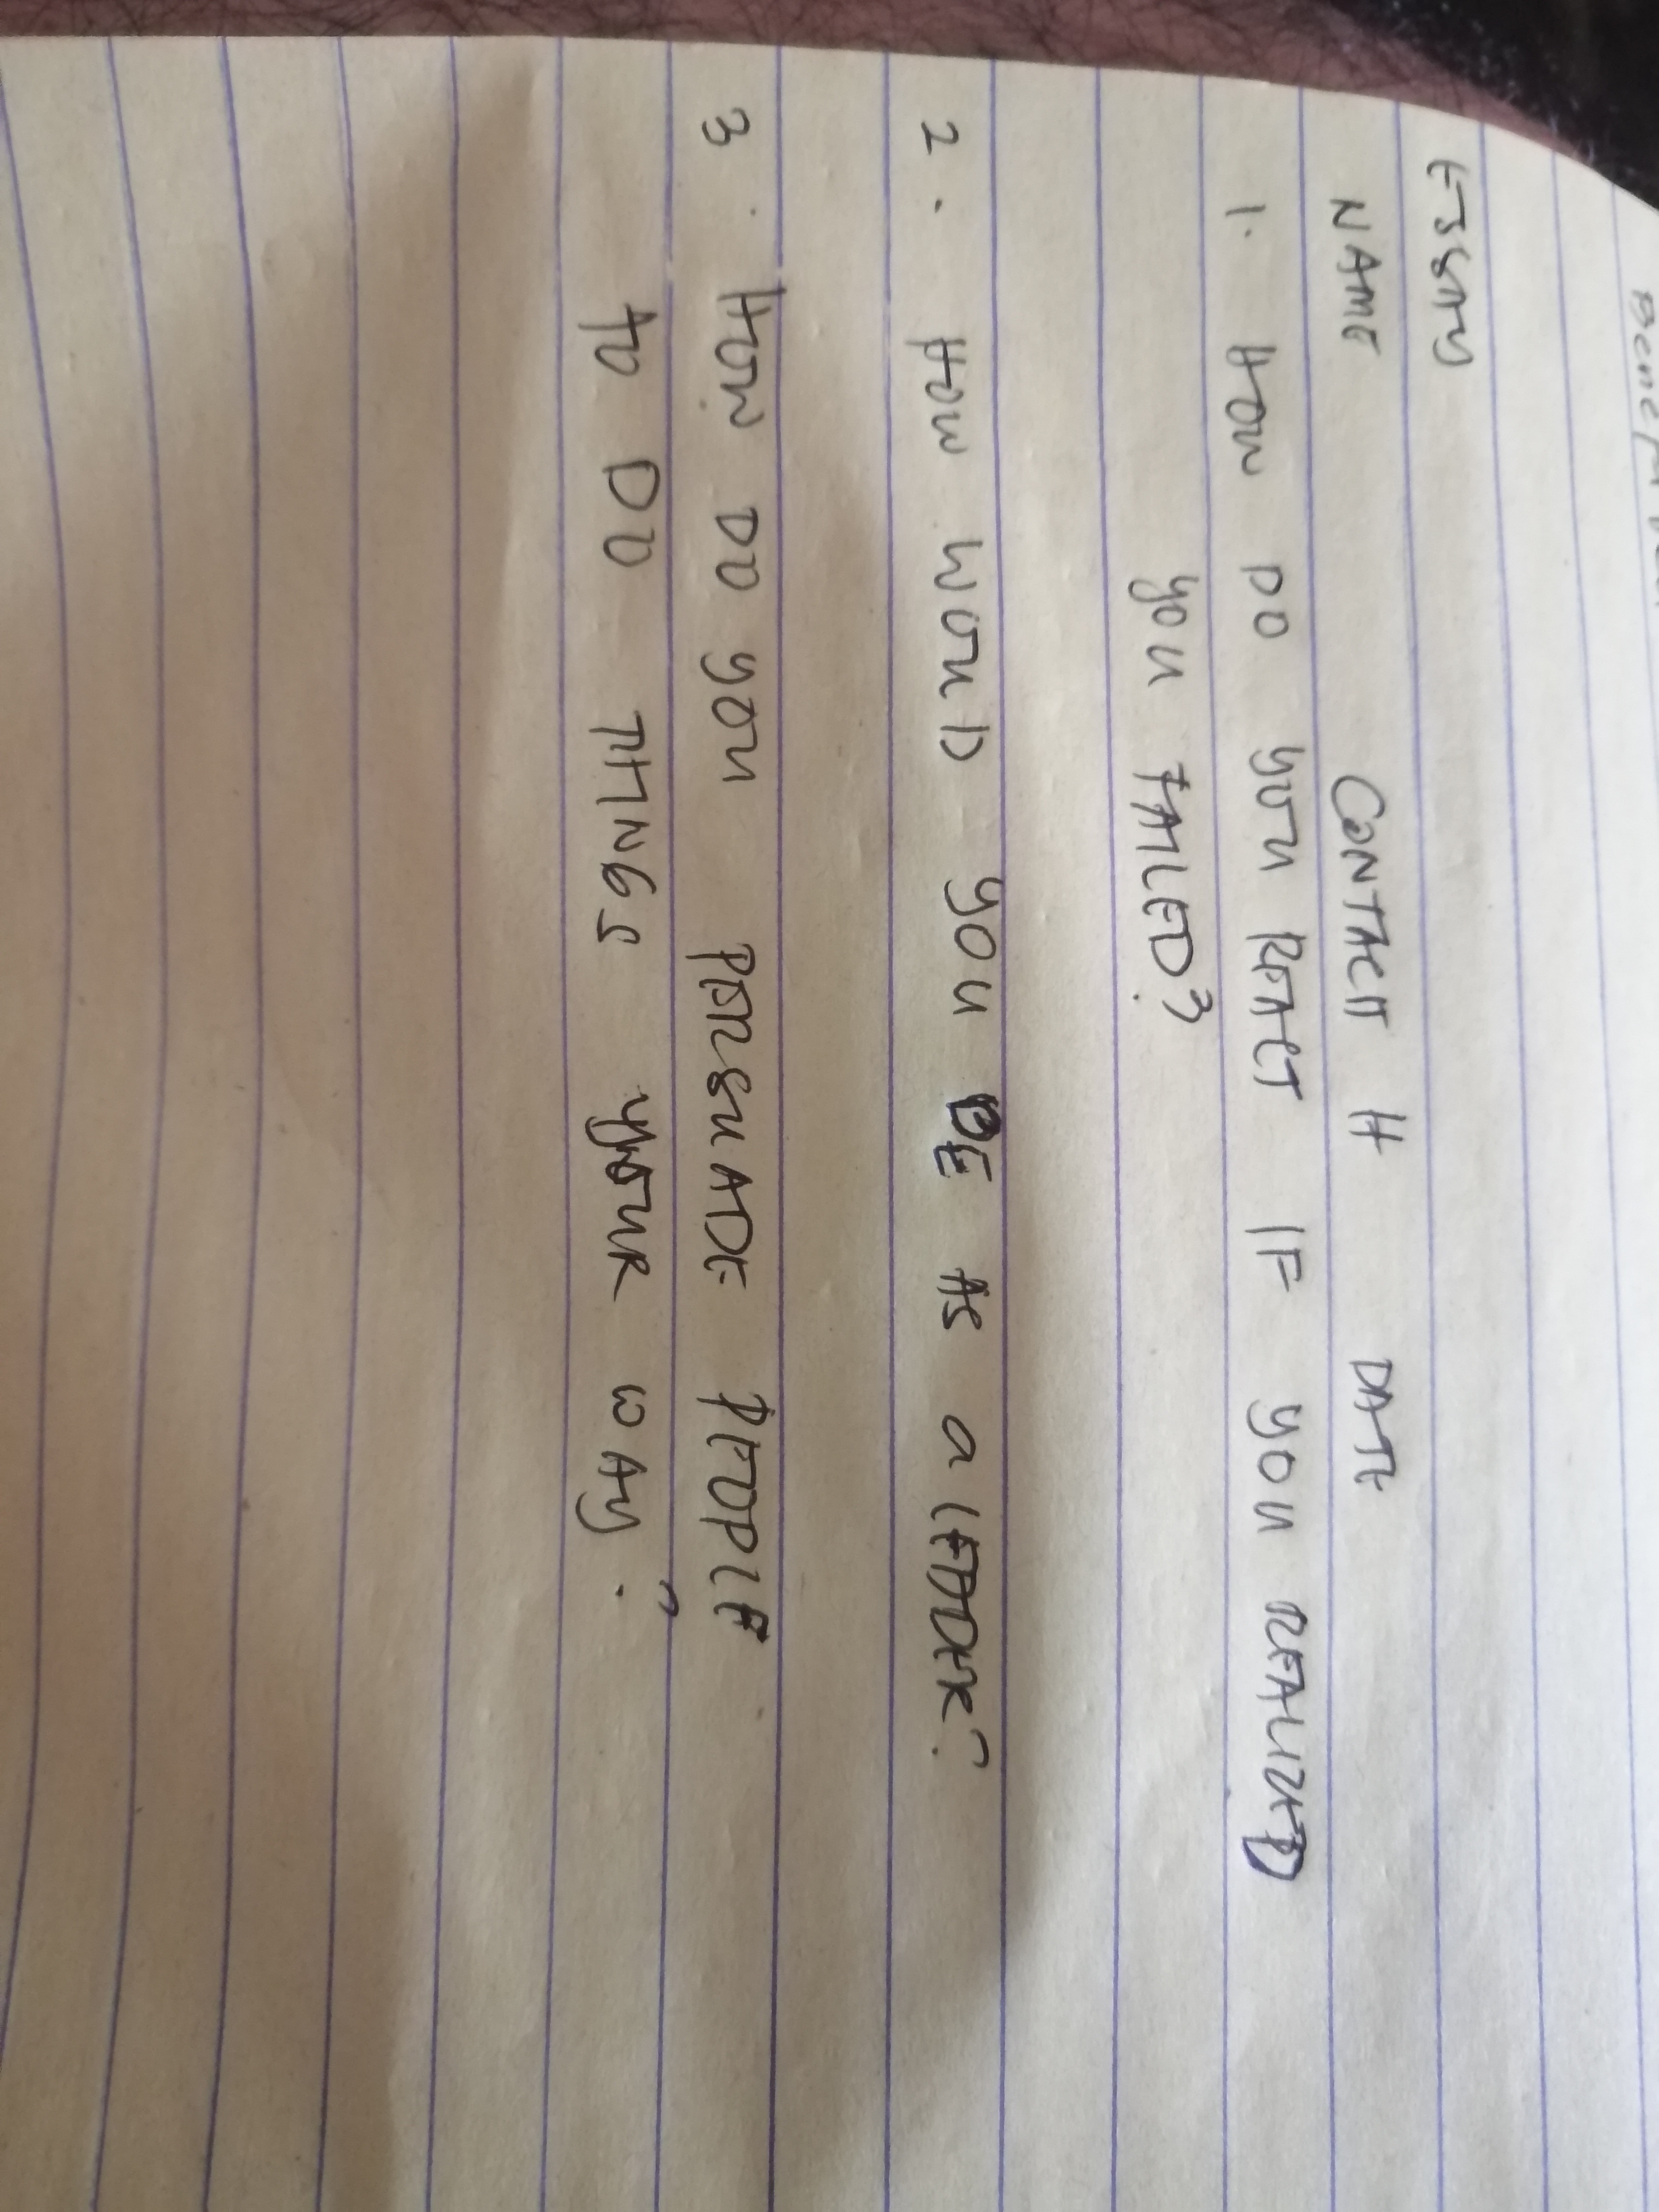 ESSAY
NAME CONTACT # DATE
1. HOW DO YOU REACT IF YOU REALIZED
YOU FAILED?
2. HOW WOULD YOU BE AS a LEADER?
3. HOW DO YOU PERSUADE PEOPLE
TO DO THINGS YOUR WAY?